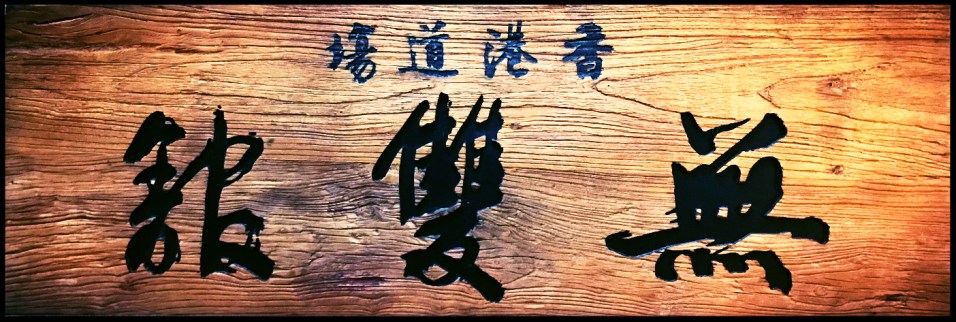 香港道場
無雙館